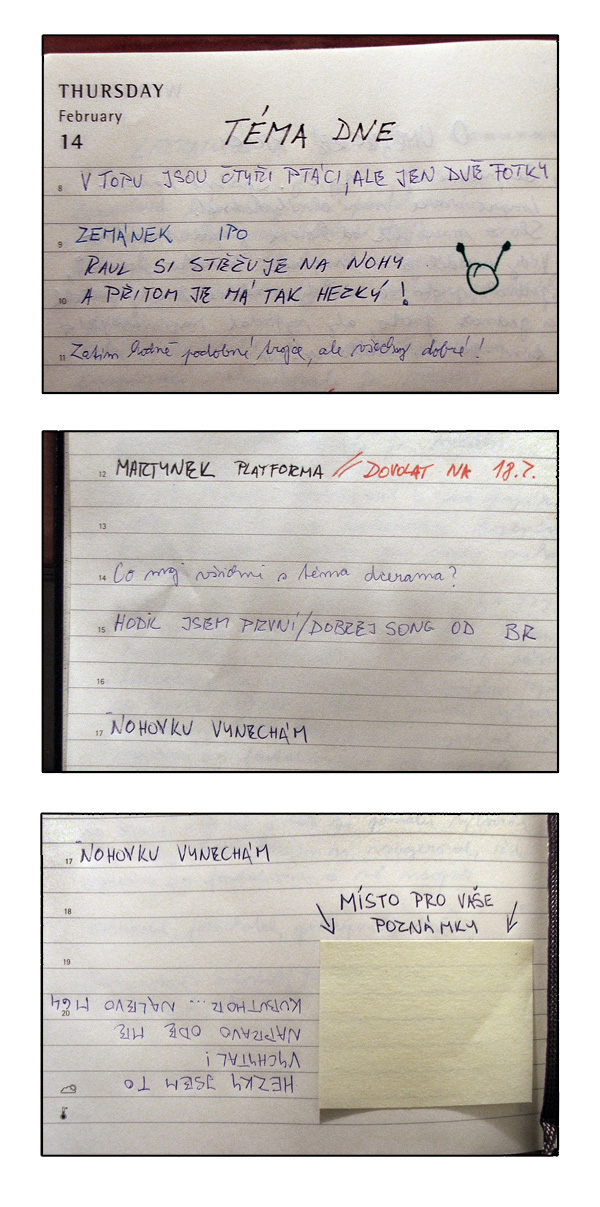 THURSDAY
February
14
TÉMA DNE
8 V TOPU JSOU ČTYŘI PTÁCI, ALE JEN DVĚ FOTKY
9 ZEMÁNEK IPO
RAUL SI STĚŽUJE NA NOHY
10 A PŘITOM JE MÁ TAK HEZKÝ!
11 Zatím hodně podobné trojce, ale všechny dobré!
12 MARTYNEK PLATFORMA // DOVOLAT NA 18.7.
13
14 Co mají všichni s téma dcerama?
15 HODIL JSEM PRVNÍ/DOBREJ SONG OD BR
16
17 NOHOVKU VYNECHÁM
17 NOHOVKU VYNECHÁM
MÍSTO PRO VAŠE
POZNÁMKY
18
19
20
HEZKY JSEM TO
VYCHYTAL!
NAPRAVO ODE MĚ
NALEVO